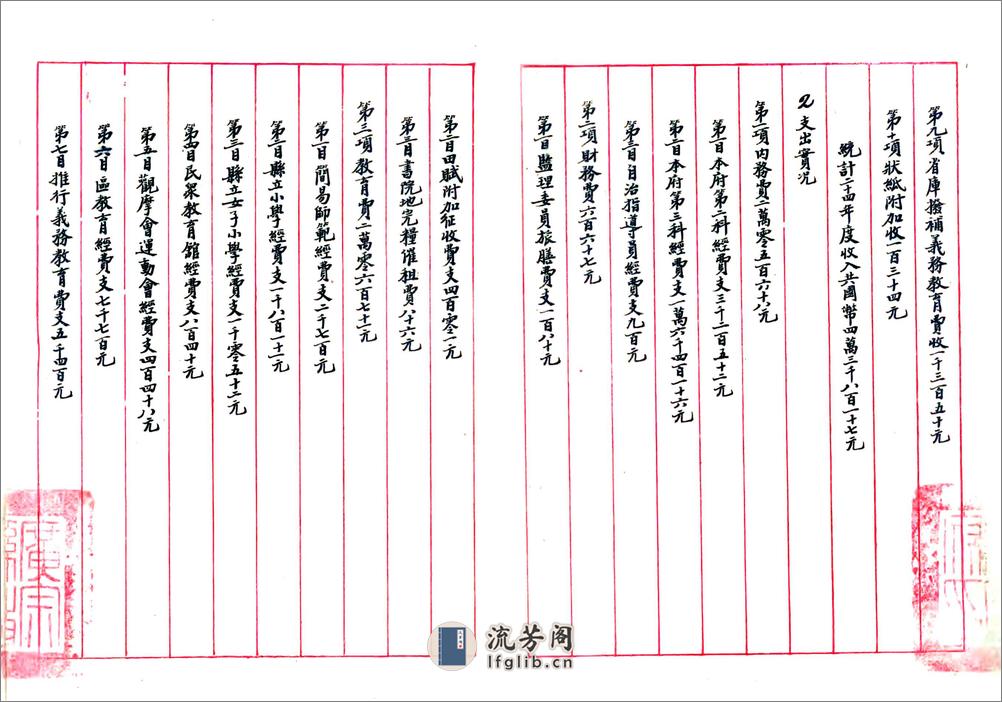 第九項省庫撥補義務教育費收一千三百五十元
第十項狀紙附加收一百三十四元
統計二十四年度收入共國幣四萬三千八百一十七元
2支出實況
第一項內務費二萬零五百六十八元
第一目本府第二科經費支三千二百五十二元
第二目本府第三科經費支一萬六千四百一十六元
第三目自治指導員經費支九百元
第二項財務費六百六十七元
第一目監理委員旅膳費支一百八十元
第二目田賦附加征收費支四百零一元
第三目書院地完糧催租費八十六元
第三項教育費二萬零六百七十一元
第一目簡易師範經費支二千七百元
第二目縣立小學經費支一千八百一十一元
第三目縣立女子小學經費支一千零五十二元
第四目民衆教育館經費支八百四十元
第五目觀摩會運動會經費支四百四十八元
第六目區教育經費支七千七百元
第七目推行義務教育費支五千四百元
流芳阁
lfglib.cn